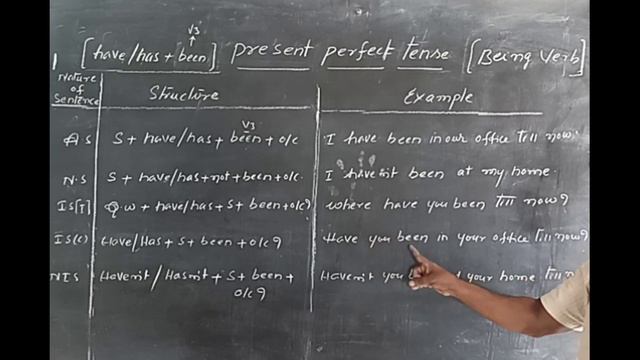 V3
1 [have/has + been] present perfect tense [Being Verb]
Nature of Sentence Structure Example
V3
A S S + have/has + been + o/c I have been in our office till now.
N.S S + have/has + not + been + o/c. I haven't been at my home.
IS[I] Q w + have/has + S + been + o/c? Where have you been till now?
IS(C) Have/Has + S + been + o/c? Have you been in your office till now?
NIS Haven't / Hasn't + S + been + Haven't you your home till
o/c?